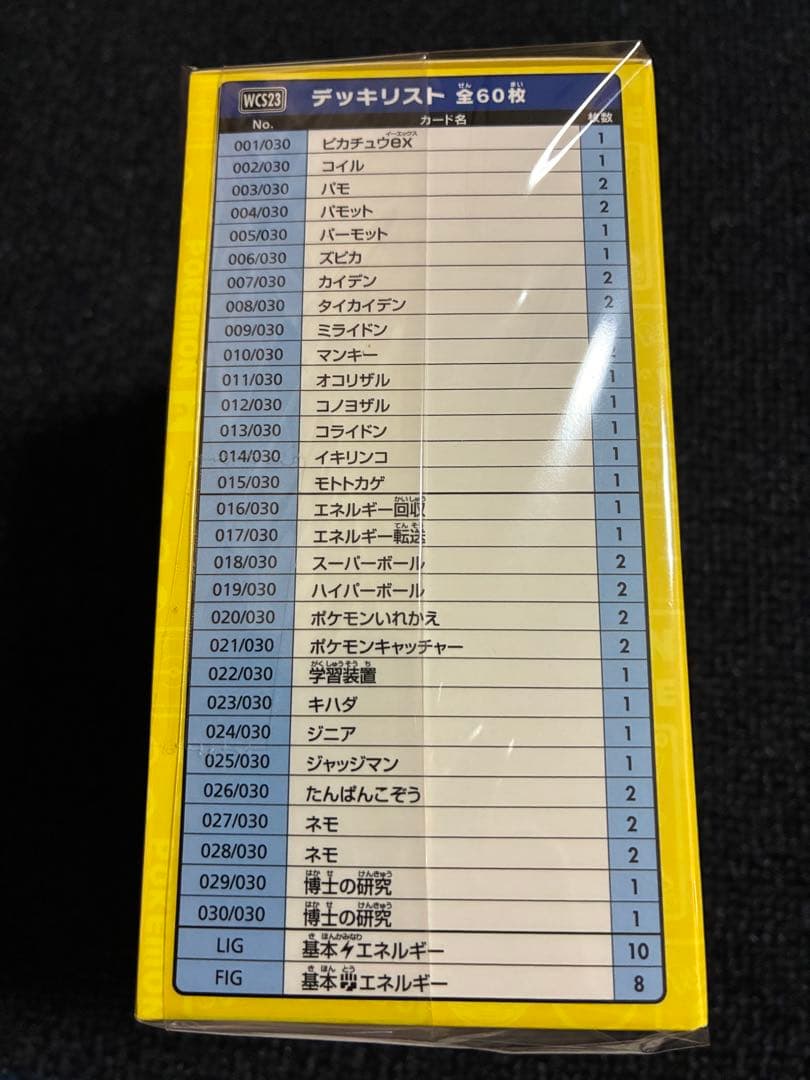 WCS23 デッキリスト 全60枚
No. カード名 枚数
001/030 ピカチュウex 1
002/030 コイル 1
003/030 パモ 2
004/030 パモット 2
005/030 パーモット 1
006/030 ズピカ 1
007/030 カイデン 2
008/030 タイカイデン 2
009/030 ミライドン
010/030 マンキー
011/030 オコリザル 1
012/030 コノヨザル 1
013/030 コライドン 1
014/030 イキリンコ 1
015/030 モトトカゲ 1
016/030 エネルギー回収 1
017/030 エネルギー転送 1
018/030 スーパーボール 2
019/030 ハイパーボール 2
020/030 ポケモンいれかえ 2
021/030 ポケモンキャッチャー 2
022/030 学習装置 1
023/030 キハダ 1
024/030 ジニア 1
025/030 ジャッジマン 1
026/030 たんぱんこぞう 2
027/030 ネモ 2
028/030 ネモ 2
029/030 博士の研究 1
030/030 博士の研究 1
LIG 基本エネルギー 10
FIG 基本エネルギー 8